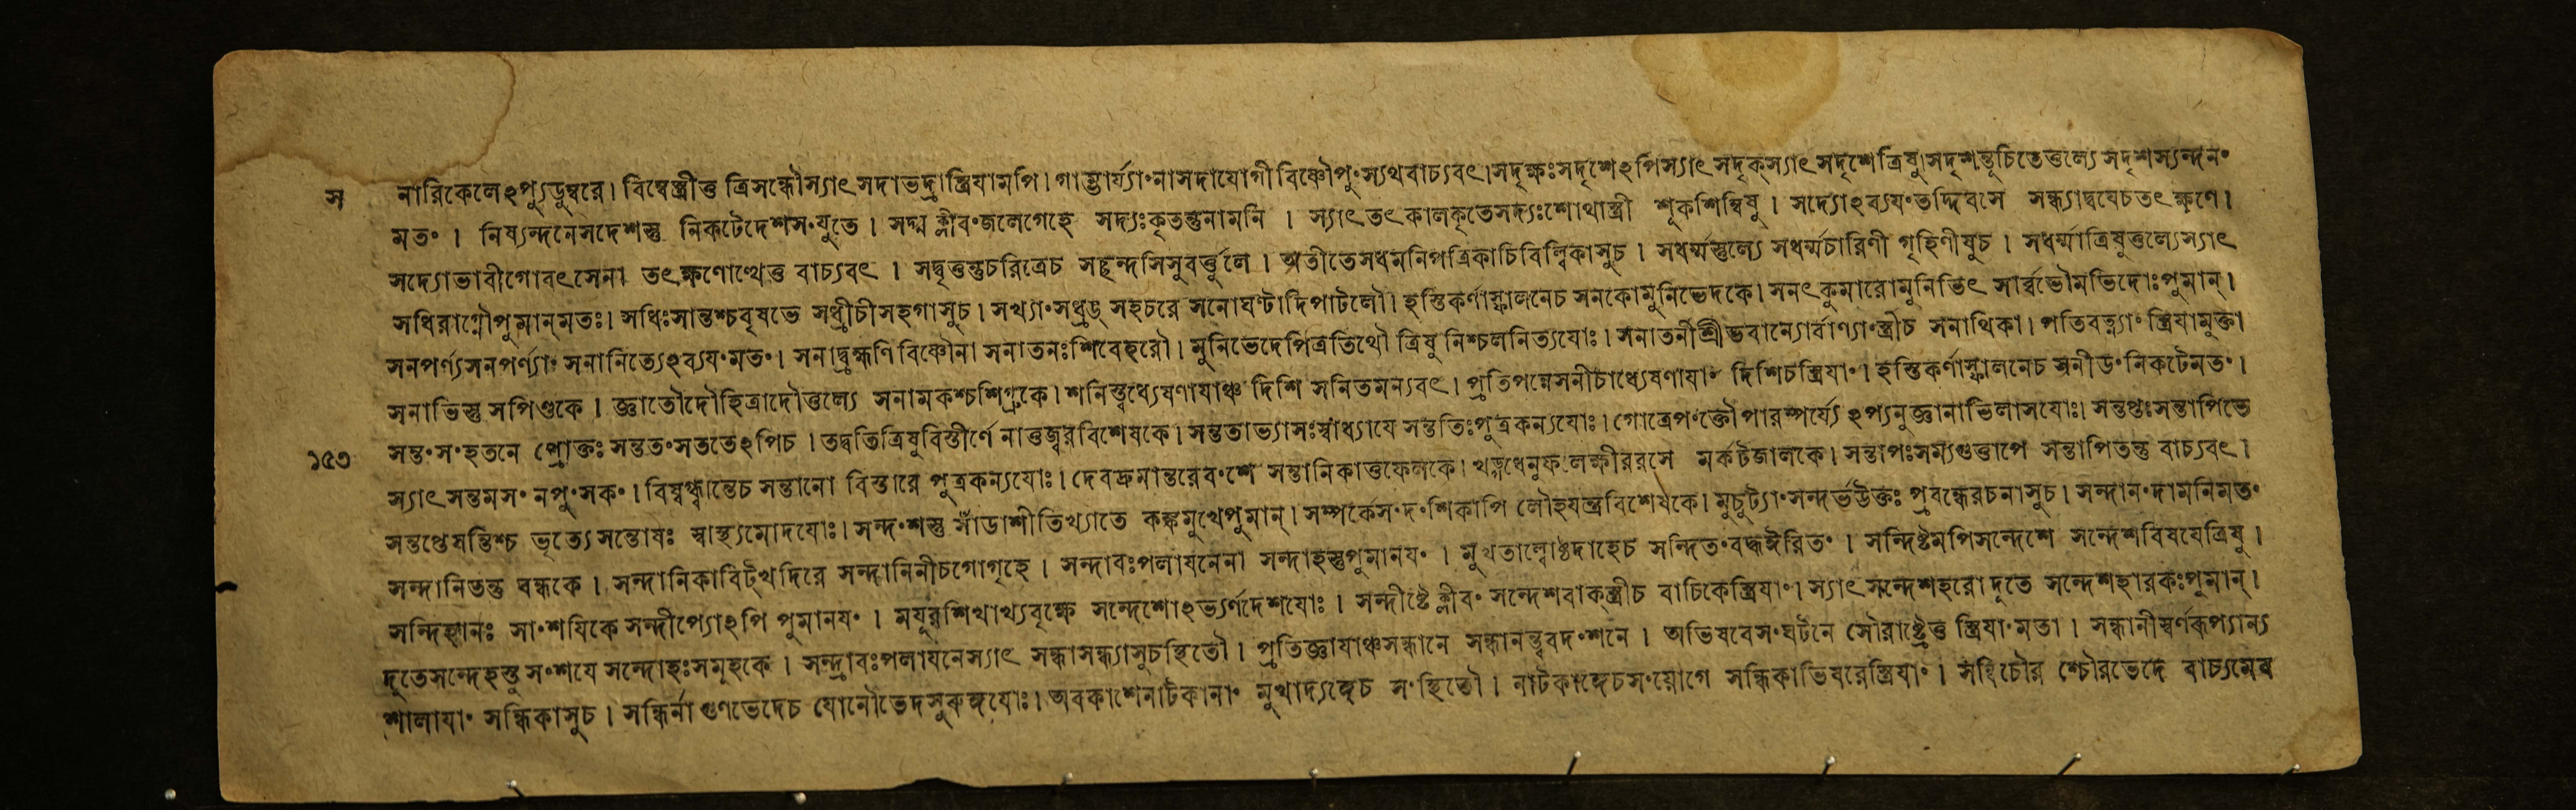 স নারিকেলেঽপ্যুডুম্বরে। বিম্বেস্ত্রীত্ত ত্রিসন্ধৌস্যাৎ সদাভদ্রাস্ত্রিযামপি। গাম্ভার্য্যাংনাসদাযোগীবিষ্ণৌপুংস্যথবাচ্যবৎ। সদৃক্ষঃসদৃশেঽপিস্যাৎ সদৃক্‌স্যাৎ সদৃশেত্রিষু। সদৃশন্তুচিতেত্তল্যে সদৃশস্যন্দনং
মতং। নিষ্যন্দনেসদেশস্তু নিকটেদেশসংযুতে। সদ্ম ক্লীবংজলেগেহে সদ্যঃকৃতন্তুনামনি। স্যাৎতৎকালকৃতেসদ্যঃশোথাস্ত্রী শূকশিম্বিষু। সদ্যোঽব্যযংতদ্দিবসে সন্ধ্যাদ্বযেচতৎক্ষণে।
সদ্যোভাবীগোবৎসেনা তৎক্ষণোত্থেত্ত বাচ্যবৎ। সদ্বৃত্তন্তুচরিত্রেচ সচ্ছন্দসিসুবর্ত্তুলে। অতীতেসধমনিপত্রিকাচিবিল্বিকাসুচ। সধর্ম্মস্তুল্যে সধর্ম্মচারিণী গৃহিণীষুচ। সধর্ম্মাত্রিষুত্তল্যেস্যাৎ
সধিরাগ্নৌপুমান্‌মতঃ। সধিঃসান্তশ্চবৃষভে সধ্রীচীসহগাসুচ। সখ্যাংসধ্র্যঙ্‌ সহচরে সনোঘণ্টাদিপাটলৌ। হস্তিকর্ণাস্ফালনেচ সনকোমুনিভেদকে। সনৎকুমারোমুনিভিৎ সার্ব্বভৌমভিদোঃপুমান্‌।
সনপর্ণ্যসনপর্ণ্যাং সনানিত্যেঽব্যযংমতং। সনাদ্ব্রহ্মণিবিষ্ণৌনা সনাতনঃশিবেহরৌ। মুনিভেদেপিত্রতিথৌ ত্রিষু নিশ্চলনিত্যযোঃ। সনাতনীশ্রীভবান্যোর্বাণ্যাংস্ত্রীচ সনাথিকা। পতিবত্ন্যাং স্ত্রিযামুক্তা
সনাভিস্তু সপিণ্ডকে। জ্ঞাতৌদৌহিত্রাদৌত্তল্যে সনামকশ্চশিগ্রুকে। শনিস্ত্বধ্যেষণাযাঞ্চ দিশি সনিতমন্যবৎ। প্রতিপন্নেসনীচাধ্যেষণাযাং দিশিচস্ত্রিযাং। হস্তিকর্ণাস্ফালনেচ সনীডংনিকটেমতং।
সন্তংসংহতনে প্রোক্তঃ সন্ততংসততেঽপিচ। তদ্বতিত্রিষুবিস্তীর্ণে নাত্তজ্বরবিশেষকে। সন্ততাভ্যাসঃস্বাধ্যাযে সন্ততিঃপুত্রকন্যযোঃ। গোত্রেপংক্তৌপারম্পর্য্যেঽপ্যনুজ্ঞানাভিলাসযোঃ। সন্তপ্তঃসন্তাপিতে
১৫৩ স্যাৎ সন্তমসং নপুংসকং। বিষ্বগ্ধ্বান্তেচ সন্তানো বিস্তারে পুত্রকন্যযোঃ। দেবদ্রুমান্তরেবংশে সন্তানিকাত্তফেলকে। খড্গধেনুফলেক্ষীররসে মর্কটজালকে। সন্তাপঃসম্যগুত্তাপে সন্তাপিতন্তু বাচ্যবৎ।
সন্তপ্তেযন্তিশ্চ ভৃত্যে সন্তোষঃ স্বাস্থ্যমোদযোঃ। সন্দংশস্তু সাঁডাশীতিখ্যাতে কঙ্কমুখেপুমান্‌। সম্পর্কেসংদংশিকাপি লৌহযন্ত্রবিশেষকে। মুচুট্যাংসন্দর্ভউক্তঃ প্রবন্ধেরচনাসুচ। সন্দানংদামনিমতং
সন্দানিতন্তু বন্ধকে। সন্দানিকাবিট্‌খদিরে সন্দানিনীচগোগৃহে। সন্দাবঃপলাযনেনা সন্দাহস্তুপুমানযং। মুখতাল্বোষ্ঠদাহেচ সন্দিতংবদ্ধঈরিতং। সন্দিষ্টমপিসন্দেশে সন্দেশবিষযেত্রিষু।
সন্দিহানঃ সাংশযিকে সন্দীপ্যোঽপি পুমানযং। মযূরশিখাখ্যবৃক্ষে সন্দেশোঽভ্যর্ণদেশযোঃ। সন্দীষ্টেক্লীবং সন্দেশবাক্‌স্ত্রীচ বাচিকেস্ত্রিযাং। স্যাৎ সন্দেশহরোদূতে সন্দেশহারকঃপুমান্‌।
দূতেসন্দেহস্তু সংশযে সন্দোহঃসমূহকে। সন্দ্রাবঃপলাযনেস্যাৎ সন্ধাসন্ধ্যাসুচস্থিতৌ। প্রতিজ্ঞাযাঞ্চসন্ধানে সন্ধানন্ত্ববদংশনে। অভিষবেসংঘটনে সৌরাষ্ট্রেত্ত স্ত্রিযাংমতা। সন্ধানীস্বর্ণরূপ্যান্য
শালাযাং সন্ধিকাসুচ। সন্ধির্না গুণভেদেচ যোনৌভেদসুরুঙ্গযোঃ। অবকাশেনাটকানাং মুখাদ্যঙ্গেচ সংস্থিতৌ। নাটকাঙ্গেচসংয়োগে সন্ধিকাভিষরেস্ত্রিযাং। সন্ধিচৌর শ্চৌরভেদে বাচ্যমেব